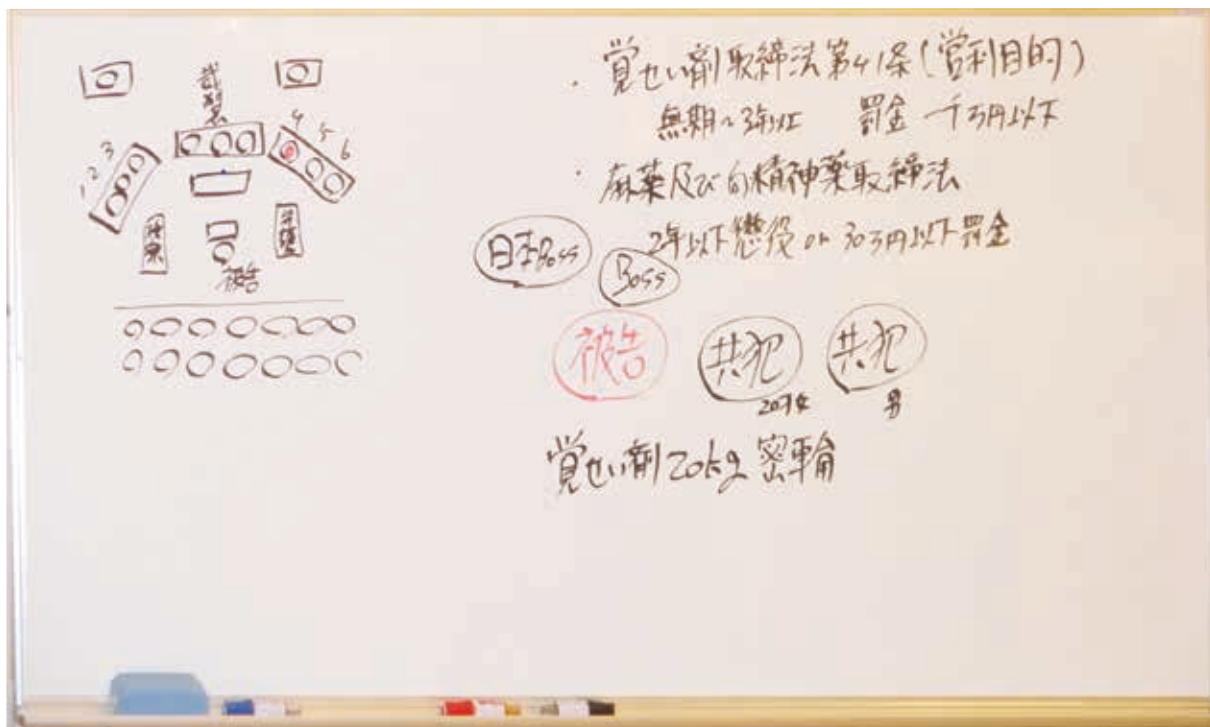 裁判
4 5 6
1 2 3
検察
弁護
被告
・覚せい剤取締法第41条(営利目的)
無期~3年以上 罰金 一千万円以下
・麻薬及び向精神薬取締法
2年以下懲役 or 30万円以下罰金
日本Boss
Boss
被告
共犯
共犯
20才女
男
覚せい剤20kg 密輸